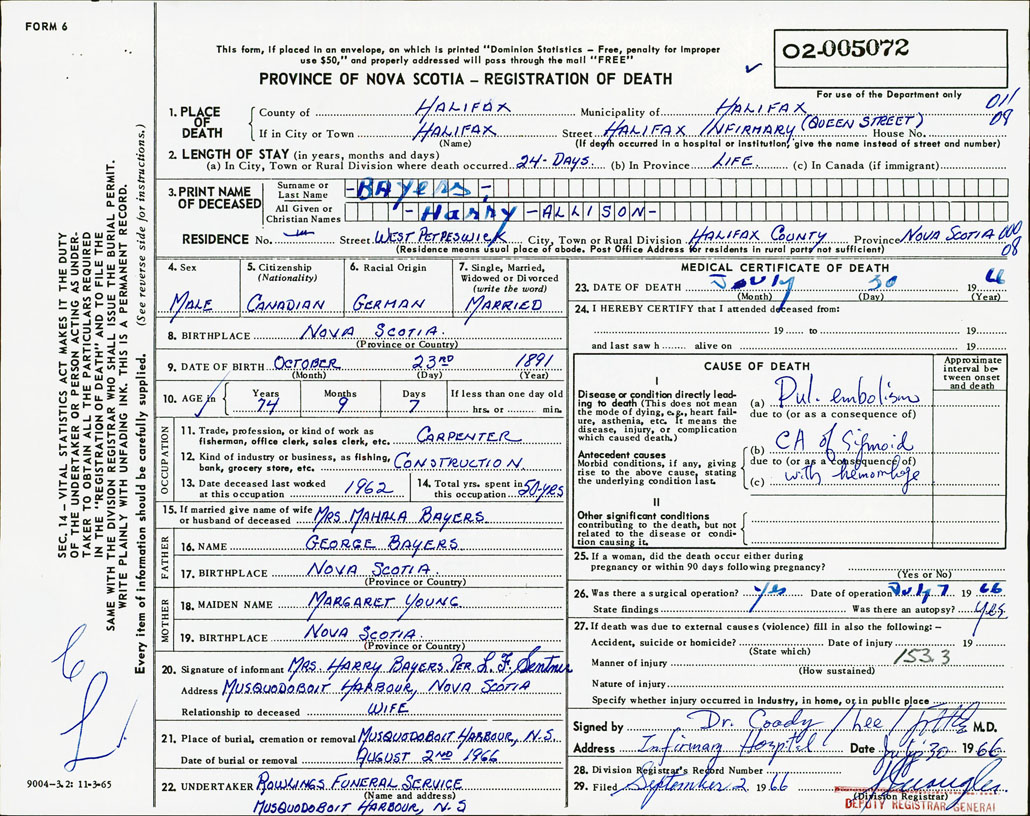 FORM 6
This form, if placed in an envelope, on which is printed "Dominion Statistics – Free, penalty for improper
use $50," and properly addressed will pass through the mail "FREE"
PROVINCE OF NOVA SCOTIA – REGISTRATION OF DEATH
02-005072
For use of the Department only
011
09
1. PLACE OF DEATH
County of HALIFAX Municipality of HALIFAX
If in City or Town HALIFAX Street HALIFAX INFIRMARY (QUEEN STREET) House No.
(Name) (If death occurred in a hospital or institution, give the name instead of street and number)
2. LENGTH OF STAY (in years, months and days)
(a) In City, Town or Rural Division where death occurred 24-DAYS. (b) In Province LIFE (c) In Canada (if immigrant)
3. PRINT NAME OF DECEASED
Surname or Last Name -BAYERS-
All Given or Christian Names -HARRY-ALLISON-
RESIDENCE No. Street WEST PETPESWICK City, Town or Rural Division HALIFAX COUNTY Province NOVA SCOTIA 000
08
(Residence means usual place of abode. Post Office Address for residents in rural parts not sufficient)
4. Sex MALE
5. Citizenship (Nationality) CANADIAN
6. Racial Origin GERMAN
7. Single, Married, Widowed or Divorced (write the word) MARRIED
8. BIRTHPLACE NOVA SCOTIA.
(Province or Country)
9. DATE OF BIRTH OCTOBER 23RD 1891
(Month) (Day) (Year)
10. AGE in Years 74 Months 9 Days 7 If less than one day old hrs. or min.
OCCUPATION
11. Trade, profession or kind of work as fisherman, office clerk, sales clerk, etc. CARPENTER
12. Kind of industry or business, as fishing, bank, grocery store, etc. CONSTRUCTION
13. Date deceased last worked at this occupation 1962
14. Total yrs. spent in this occupation 50-YRS
15. If married give name of wife or husband of deceased MRS. MAHALA BAYERS.
FATHER
16. NAME GEORGE BAYERS.
17. BIRTHPLACE NOVA SCOTIA.
(Province or Country)
MOTHER
18. MAIDEN NAME MARGARET YOUNG.
19. BIRTHPLACE NOVA SCOTIA.
(Province or Country)
20. Signature of informant MRS. HARRY BAYERS. PER. L. F. Sentner
Address MUSQUODOBOIT HARBOUR, NOVA SCOTIA
Relationship to deceased WIFE
21. Place of burial, cremation or removal MUSQUODOBOIT HARBOUR, N.S.
Date of burial or removal AUGUST 2ND 1966
22. UNDERTAKER ROWLINGS FUNERAL SERVICE
(Name and address)
MUSQUODOBOIT HARBOUR, N.S
MEDICAL CERTIFICATE OF DEATH
23. DATE OF DEATH July 30 1966
(Month) (Day) (Year)
24. I HEREBY CERTIFY that I attended deceased from:
19 to 19
and last saw h alive on 19
CAUSE OF DEATH
Approximate interval between onset and death
I
Disease or condition directly leading to death (This does not mean the mode of dying, e.g., heart failure, asthenia, etc. It means the disease, injury, or complication which caused death.)
(a) Pul. embolism
due to (or as a consequence of)
Antecedent causes
Morbid conditions, if any, giving rise to the above cause, stating the underlying condition last.
(b) CA of Sigmoid
due to (or as a consequence of)
(c) with hemorrhage
II
Other significant conditions contributing to the death, but not related to the disease or condition causing it.
25. If a woman, did the death occur either during pregnancy or within 90 days following pregnancy?
(Yes or No)
26. Was there a surgical operation? Yes Date of operation July 7 1966
State findings Was there an autopsy? Yes
27. If death was due to external causes (violence) fill in also the following:–
Accident, suicide or homicide? Date of injury 19
(State which) 153.3
Manner of injury
(How sustained)
Nature of injury
Specify whether injury occurred in industry, in home, or in public place
Signed by Dr. Coady / Lee M.D.
Address Infirmary Hospital Date July 30 1966
28. Division Registrar's Record Number
29. Filed September 2 1966
(Division Registrar)
DEPUTY REGISTRAR GENERAL
SEC. 14 – VITAL STATISTICS ACT MAKES IT THE DUTY
OF THE UNDERTAKER OR PERSON ACTING AS UNDER-
TAKER TO OBTAIN ALL THE PARTICULARS REQUIRED
IN THE "REGISTRATION OF DEATH" AND TO FILE THE
SAME WITH THE DIVISION REGISTRAR WHO SHALL ISSUE THE BURIAL PERMIT.
WRITE PLAINLY WITH UNFADING INK. THIS IS A PERMANENT RECORD.
Every item of information should be carefully supplied. (See reverse side for instructions.)
9004-3.2: 11-3-65